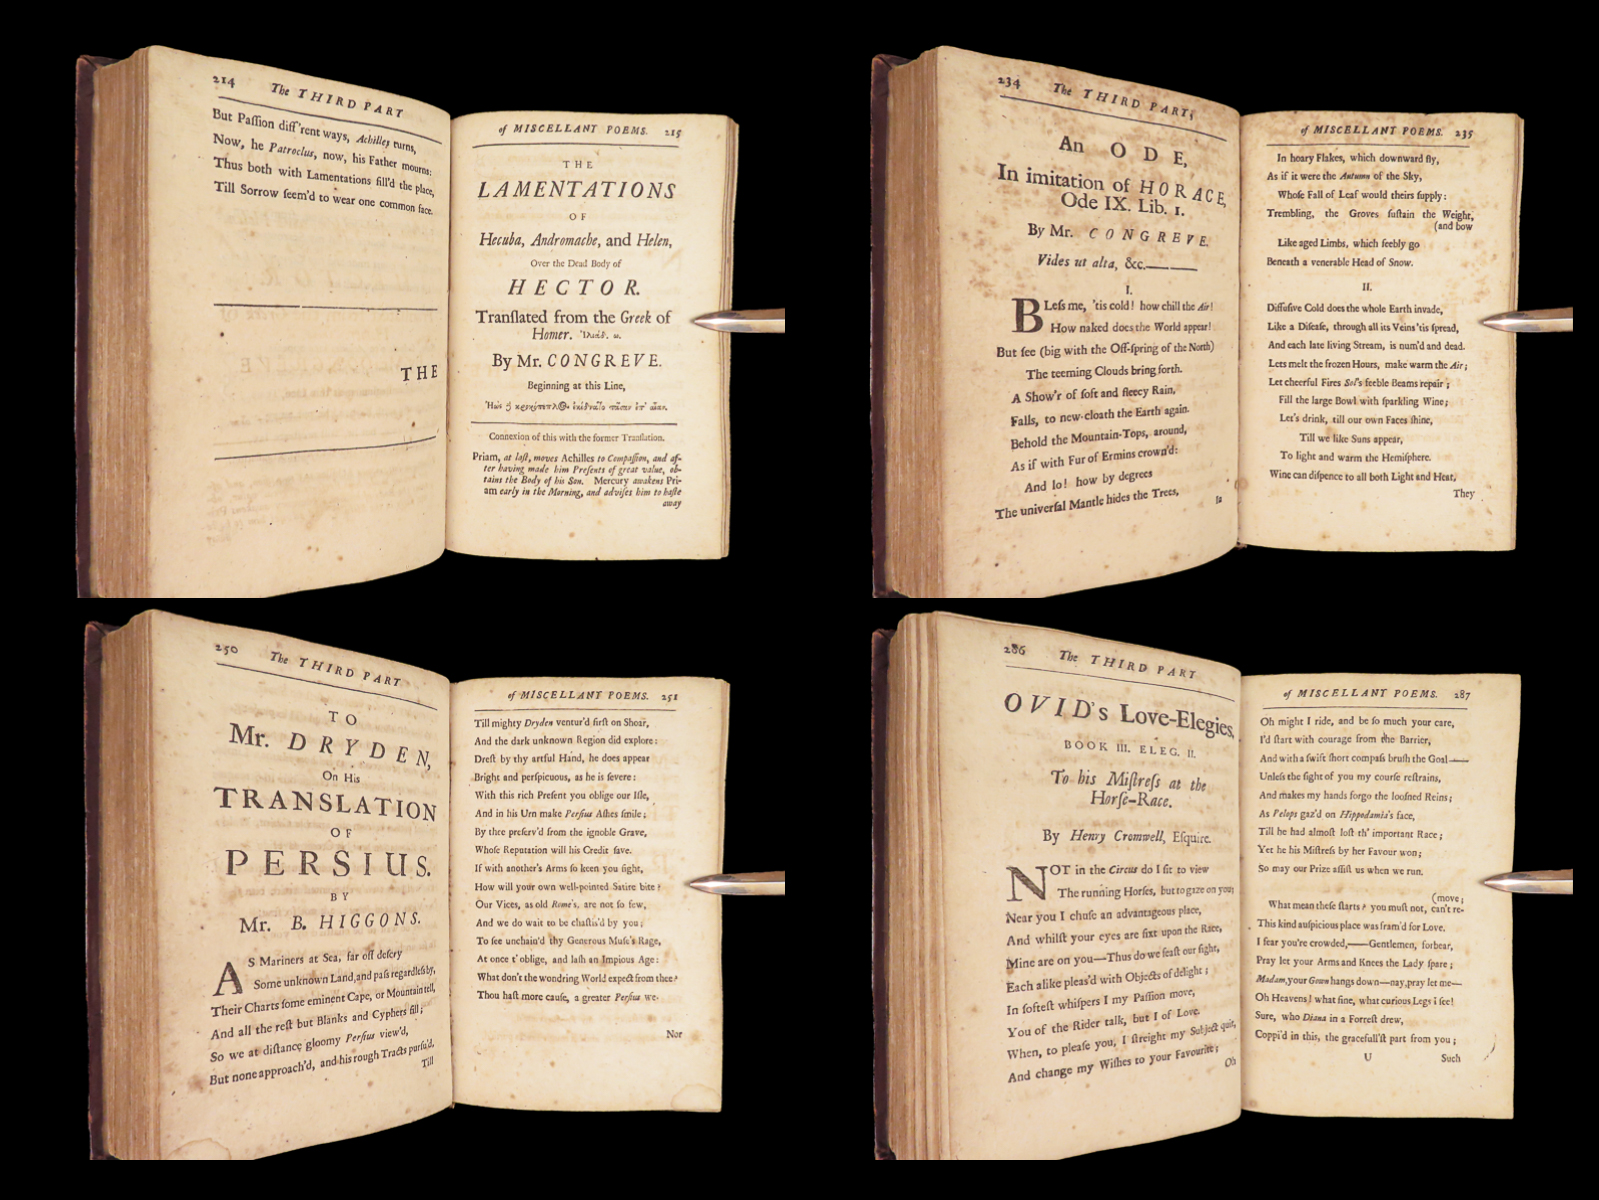 214 The THIRD PART
But Paſſion diff'rent ways, Achilles turns,
Now, he Patroclus, now, his Father mourns:
Thus both with Lamentations fill'd the place,
Till Sorrow ſeem'd to wear one common face.
THE
of MISCELLANY POEMS. 215
THE
LAMENTATIONS
OF
Hecuba, Andromache, and Helen,
Over the Dead Body of
HECTOR.
Tranſlated from the Greek of
Homer.
By Mr. CONGREVE.
Beginning at this Line,
Connexion of this with the former Tranſlation.
Priam, at laſt, moves Achilles to Compaſſion, and af-
ter having made him Preſents of great value, ob-
tains the Body of his Son. Mercury awakens Pri-
am early in the Morning, and adviſes him to haſte
away
234 The THIRD PART,
An ODE,
In imitation of HORACE,
Ode IX. Lib. I.
By Mr. CONGREVE.
Vides ut alta, &c.
I.
BLeſs me, 'tis cold! how chill the Air!
How naked does the World appear!
But ſee (big with the Off-ſpring of the North)
The teeming Clouds bring forth.
A Show'r of ſoft and fleecy Rain,
Falls, to new-cloath the Earth again.
Behold the Mountain-Tops, around,
As if with Fur of Ermins crown'd:
And lo! how by degrees
The univerſal Mantle hides the Trees,
In
of MISCELLANY POEMS. 235
In hoary Flakes, which downward fly,
As if it were the Autumn of the Sky,
Whoſe Fall of Leaf would theirs ſupply:
Trembling, the Groves ſuſtain the Weight,
(and bow
Like aged Limbs, which feebly go
Beneath a venerable Head of Snow.
II.
Diffuſive Cold does the whole Earth invade,
Like a Diſeaſe, through all its Veins 'tis ſpread,
And each late living Stream, is num'd and dead.
Lets melt the frozen Hours, make warm the Air;
Let cheerful Fires Sol's feeble Beams repair;
Fill the large Bowl with ſparkling Wine;
Let's drink, till our own Faces ſhine,
Till we like Suns appear,
To light and warm the Hemiſphere.
Wine can diſpence to all both Light and Heat,
They
250 The THIRD PART
TO
Mr. DRYDEN,
On His
TRANSLATION
OF
PERSIUS.
BY
Mr. B. HIGGONS.
AS Mariners at Sea, far off deſcry
Some unknown Land, and paſs regardleſs by,
Their Charts ſome eminent Cape, or Mountain tell,
And all the reſt but Blanks and Cyphers fill;
So we at diſtance gloomy Perſius view'd,
But none approach'd, and his rough Tracts purſu'd.
Till
of MISCELLANY POEMS. 251
Till mighty Dryden ventur'd firſt on Shoar,
And the dark unknown Region did explore:
Dreſt by thy artful Hand, he does appear
Bright and perſpicuous, as he is ſevere:
With this rich Preſent you oblige our Iſle,
And in his Urn make Perſius Aſhes ſmile;
By thee preſerv'd from the ignoble Grave,
Whoſe Reputation will his Credit ſave.
If with another's Arms ſo keen you fight,
How will your own well-pointed Satire bite?
Our Vices, as old Rome's, are not ſo few,
And we do wait to be chaſtis'd by you;
To ſee unchain'd thy Generous Muſe's Rage,
At once t' oblige, and laſh an Impious Age:
What don't the wondring World expect from thee?
Thou haſt more cauſe, a greater Perſius we.
Nor
286 The THIRD PART
OVID's Love-Elegies,
BOOK III. ELEG. II.
To his Miſtreſs at the
Horſe-Race.
By Henry Cromwell, Eſquire.
NOT in the Circus do I ſit to view
The running Horſes, but to gaze on you;
Near you I chuſe an advantageous place,
And whilſt your eyes are fixt upon the Race,
Mine are on you—Thus do we feaſt our ſight,
Each alike pleas'd with Objects of delight;
In ſofteſt whiſpers I my Paſſion move,
You of the Rider talk, but I of Love.
When, to pleaſe you, I ſtreight my Subject quit,
And change my Wiſhes to your Favourite;
Oh
of MISCELLANY POEMS. 287
Oh might I ride, and be ſo much your care,
I'd ſtart with courage from the Barrier,
And with a ſwift ſhort compaſs bruſh the Goal——
Unleſs the ſight of you my courſe reſtrains,
And makes my hands forgo the looſned Reins;
As Pelops gaz'd on Hippodamia's face,
Till he had almoſt loſt th' important Race;
Yet he his Miſtreſs by her Favour won;
So may our Prize aſſiſt us when we run.
(move;
What mean theſe ſtarts? you muſt not, can't re-
This kind auſpicious place was fram'd for Love.
I fear you're crowded,——Gentlemen, forbear,
Pray let your Arms and Knees the Lady ſpare;
Madam, your Gown hangs down—nay, pray let me—
Oh Heavens! what fine, what curious Legs I ſee!
Sure, who Diana in a Forreſt drew,
Coppi'd in this, the gracefull'ſt part from you;
U Such